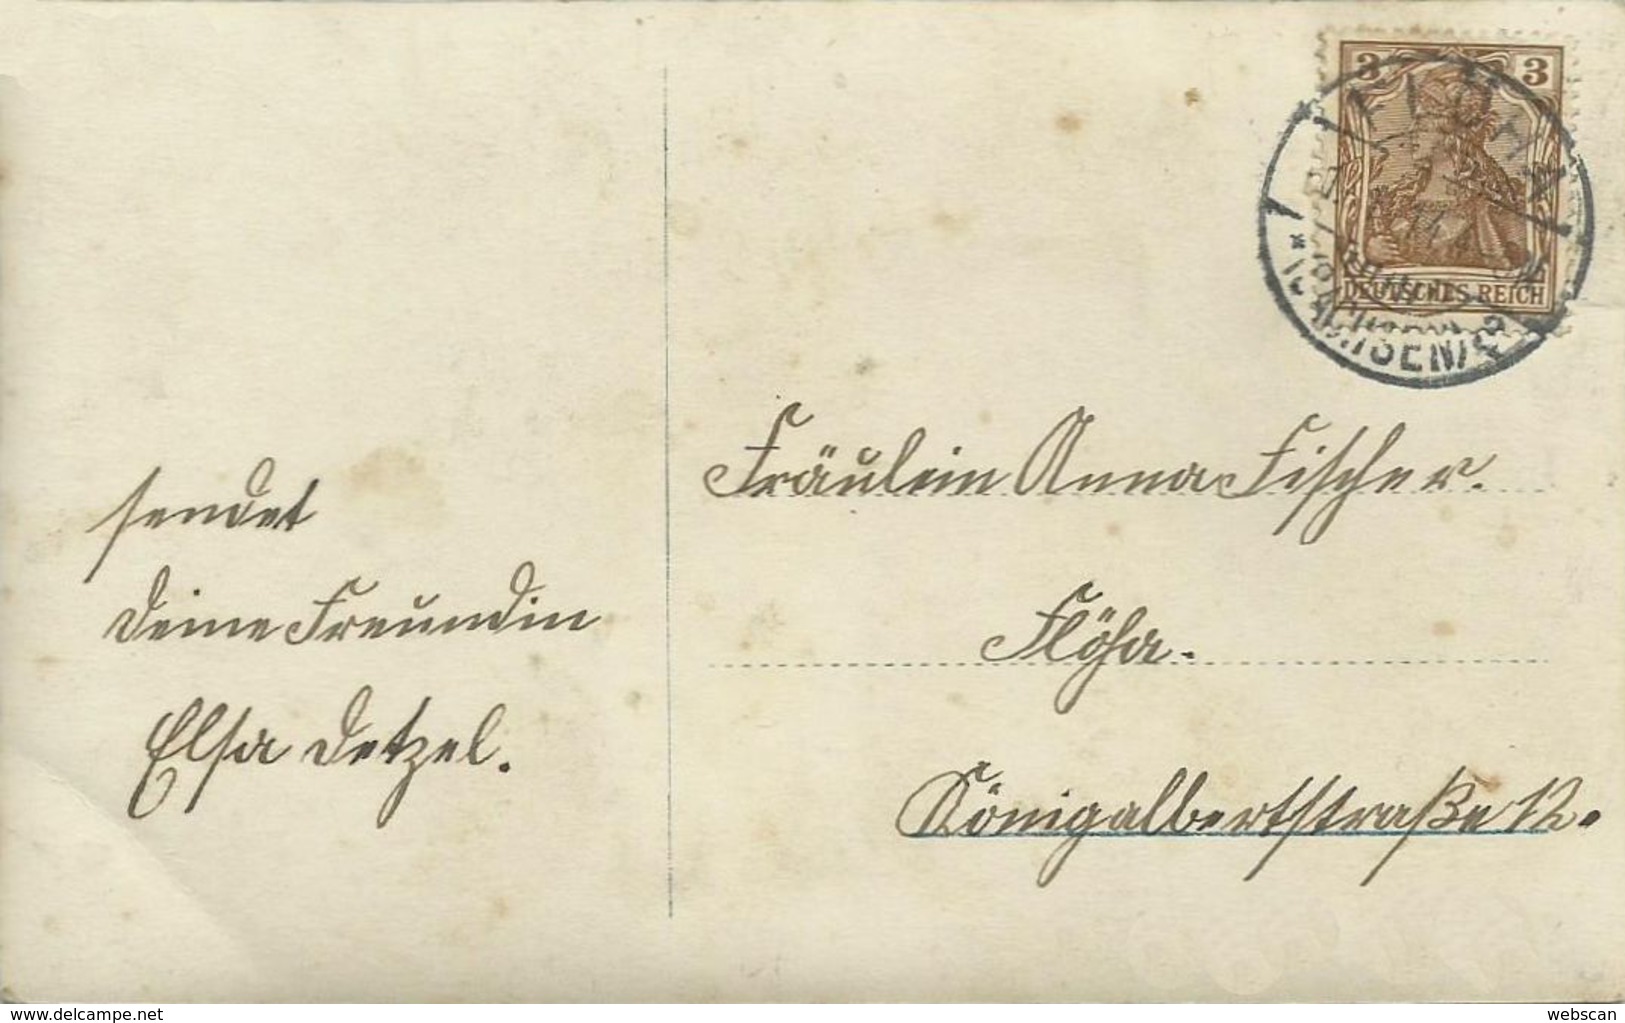 3 3
FLÖHA
14
(SACHSEN)
DEUTSCHES REICH
sendet
Deine Freundin
Elsa Detzel.
Fräulein Anna Fischer.
Flöha.
Königalbertstraße 12.
www.delcampe.net
webscan